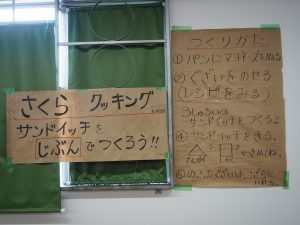 さくら クッキング
サンドイッチを
じぶんでつくろう!!
つくりかた
① パンにマヨネーズをぬる
② ぐざいをのせる
(レシピをみる)
3しゅるいの
サンドイッチをつくる!!
④ サンドイッチをきる。
さんかく ? しかく ?←きめてね。
⑤ のこったぐざいは、さらに
いれる。